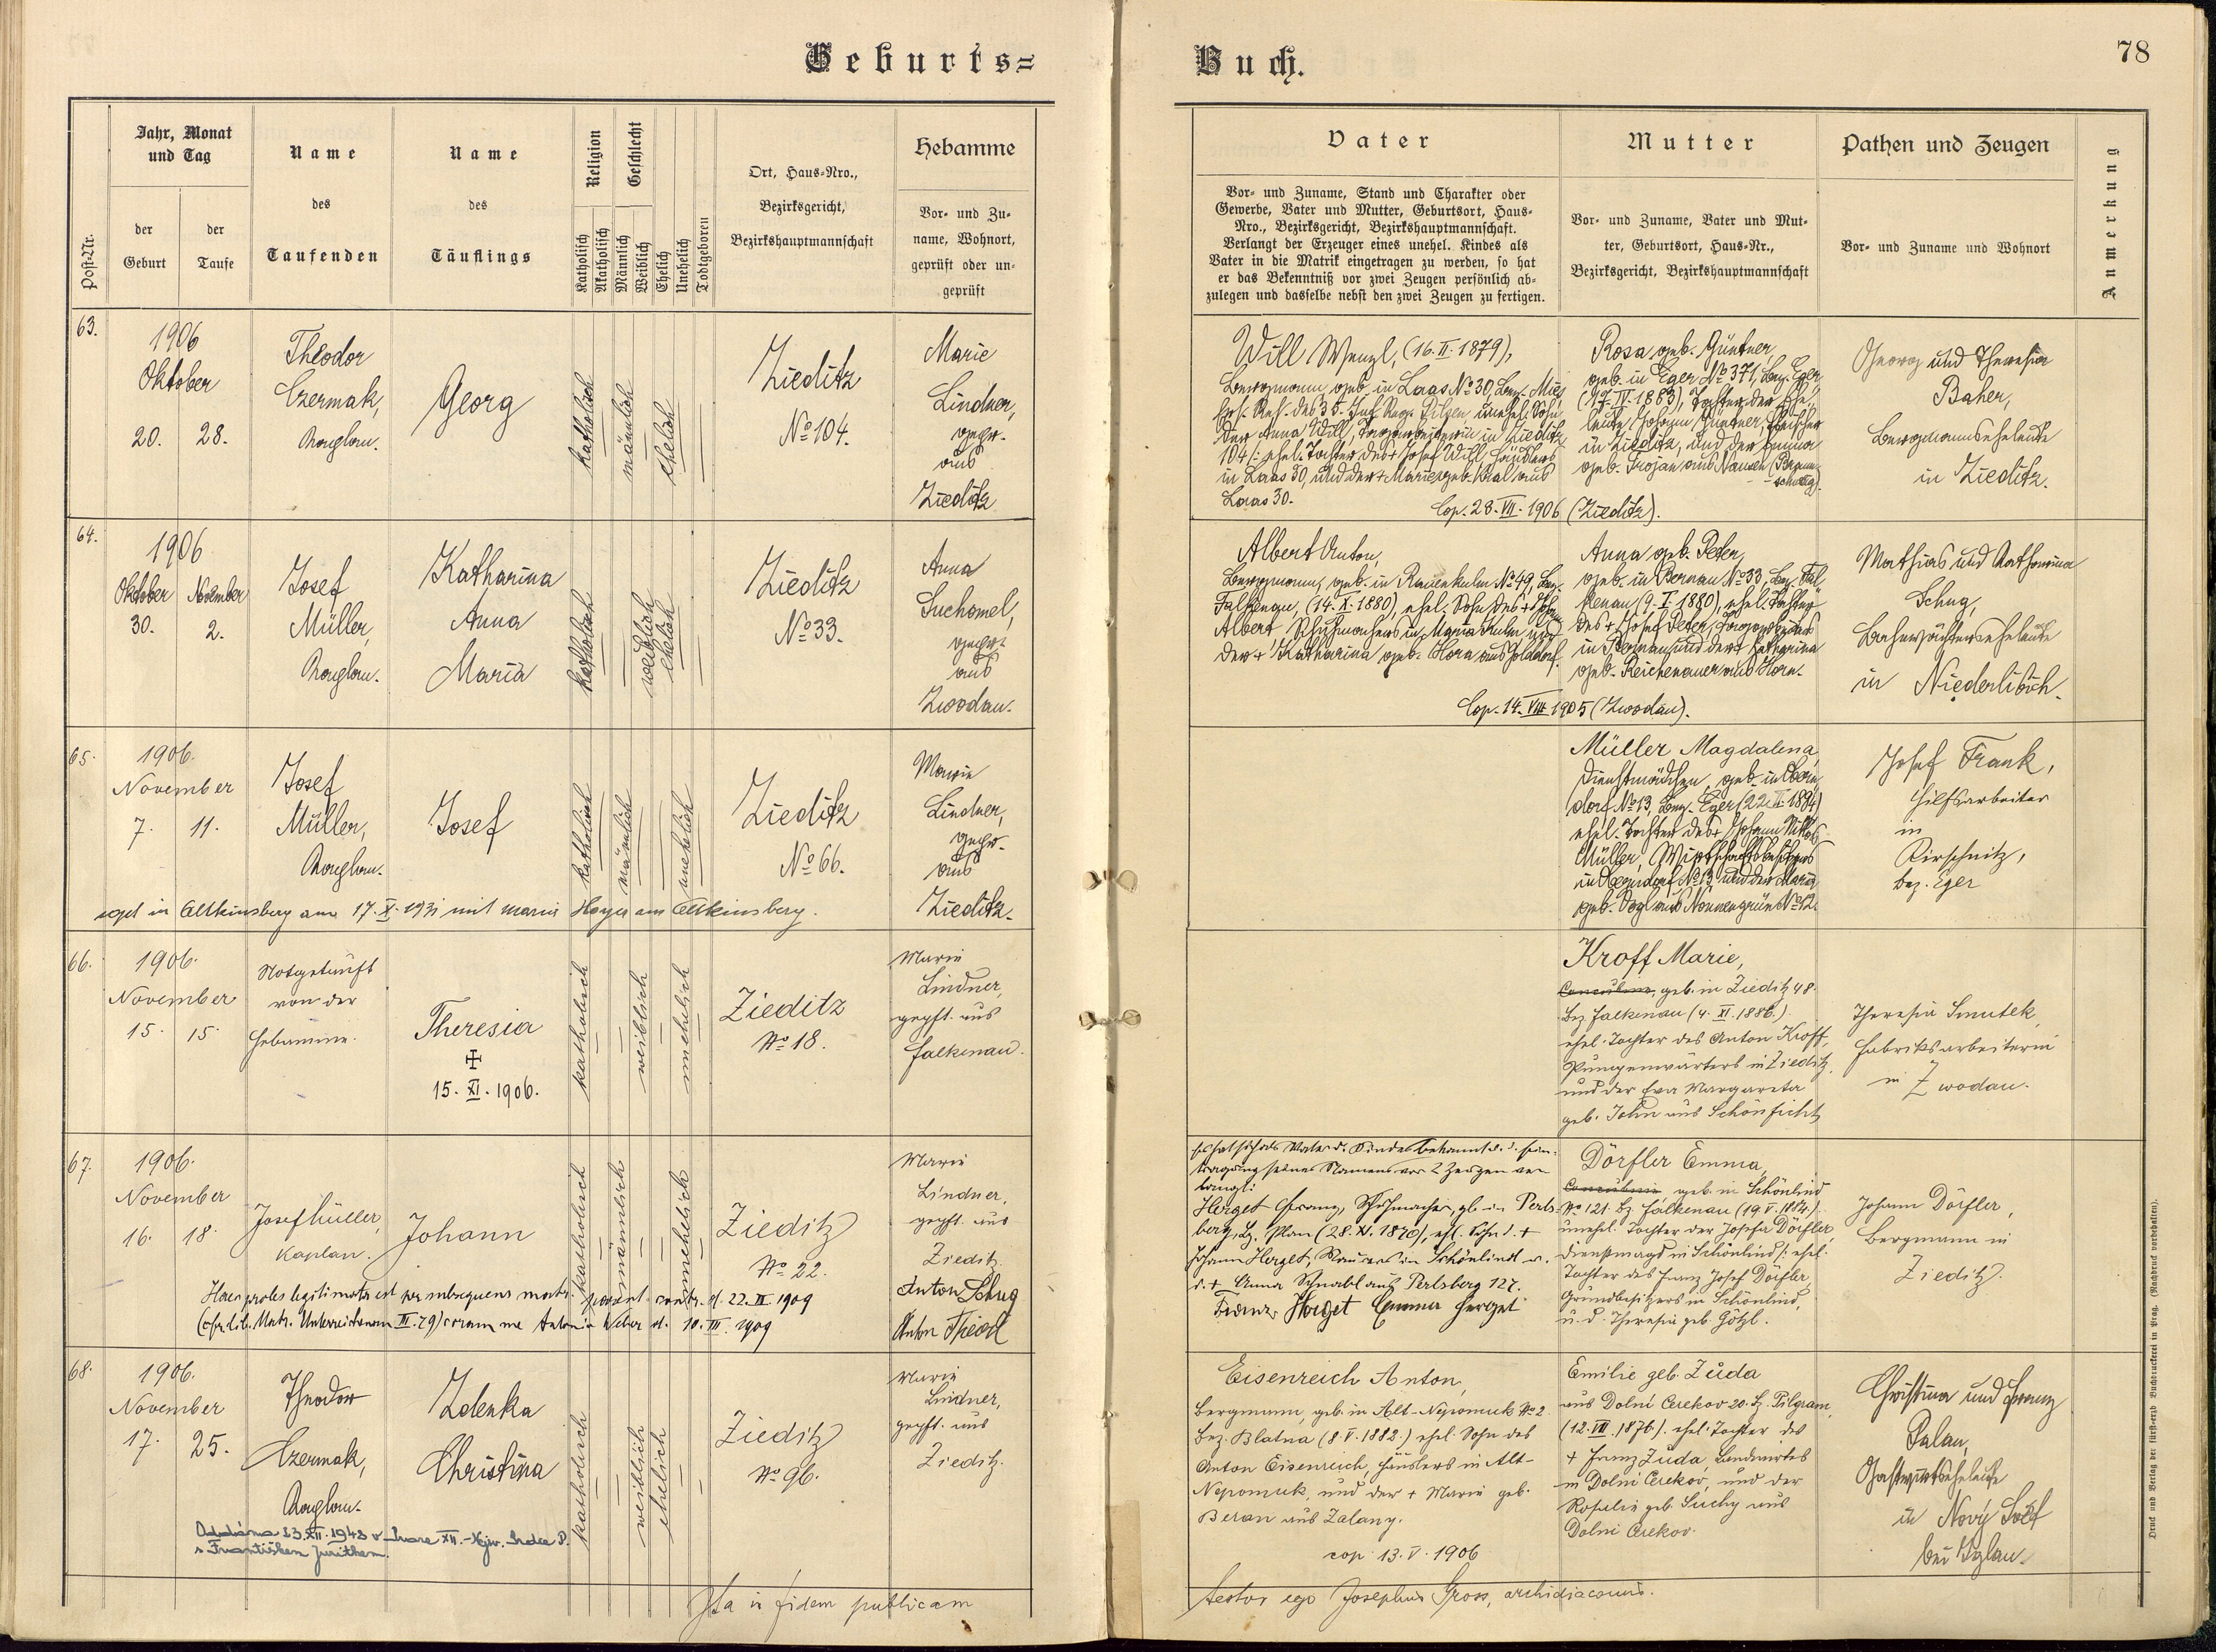 Geburts=
Buch.
78
Post-Nr.
Jahr, Monat
und Tag
der
Geburt
der
Taufe
Name
des
Taufenden
Name
des
Täuflings
Religion
Katholisch
Akatholisch
Geschlecht
Männlich
Weiblich
Ehelich
Unehelich
Todtgeboren
Ort, Haus-Nro.,
Bezirksgericht,
Bezirkshauptmannschaft
Hebamme
Vor- und Zu-
name, Wohnort,
geprüft oder un-
geprüft
Vater
Vor- und Zuname, Stand und Charakter oder
Gewerbe, Vater und Mutter, Geburtsort, Haus-
Nro., Bezirksgericht, Bezirkshauptmannschaft.
Verlangt der Erzeuger eines unehel. Kindes als
Vater in die Matrik eingetragen zu werden, so hat
er das Bekenntniß vor zwei Zeugen persönlich ab-
zulegen und dasselbe nebst den zwei Zeugen zu fertigen.
Mutter
Vor- und Zuname, Vater und Mut-
ter, Geburtsort, Haus-Nr.,
Bezirksgericht, Bezirkshauptmannschaft
Pathen und Zeugen
Vor- und Zuname und Wohnort
Anmerkung
63.
1906
Oktober
20. 28.
Theodor
Czermak,
Georg
katholisch
männlich
ehelich
Zieditz
No 104.
Marie
Lindner,
gepr.
aus
Zieditz
Will Wenzl, (16. II. 1879),
Bergmann, geb. in Laas No 30, Bez. Mies,
des 35. Inf. Reg. Pilsen, unehel. Sohn
der Anna Will, in Zieditz
104 /: ehel. Tochter des + Josef Will, Häuslers
in Laas 30, und der + Marie geb. Kral aus
Laas 30.
Cop. 28. VII. 1906 (Zieditz).
Rosa geb. Güntner,
geb. in Eger No 371, Bez. Eger,
(17. IV. 1883), Tochter der Ehe-
leute Johann Güntner,
in Zieditz, und der
geb. Trojan aus
Georg und Theresia
Baher,
Bergmannseheleute
in Zieditz.
64.
1906
Oktober November
30. 2.
Josef
Müller,
Katharina
Anna
Maria
katholisch
weiblich
ehelich
Zieditz
No 33.
Anna
Suchomel,
gepr.
aus
Zwodau.
Albert Anton,
Bergmann, geb. in Rauenkulm No 49, Bez.
Falkenau, (14. X. 1880), ehel. Sohn des + Joh.
Albert, Schuhmachers in Maria Kulm und
der + Katharina geb. Hora aus Golddorf.
Cop. 14. VIII 1905 (Zwodau).
Anna geb. Peter,
geb. in Bernau No 33, Bez. Fal-
kenau (9. I. 1880), ehel. Tochter
des + Josef Peter,
in Bernau und der + Katharina
geb. Reichenauer aus Horn.
Mathias und Katharina
Schug,
Bahnwächterseheleute
in Niederlisch.
65.
1906.
November
7. 11.
Josef
Müller,
Josef
katholisch
männlich
unehelich
Zieditz
No 66.
Marie
Lindner,
gepr.
aus
Zieditz.
in Altkinsberg am 17. X. 1931 mit Marie Hoyer aus Altkinsberg.
Müller Magdalena,
Dienstmädchen, geb. in Obern-
dorf No 13, Bez. Eger (22. II. 1884)
ehel. Tochter des + Johann Niklas
Müller, Wirtschaftsbesitzers
in Oberndorf No 13 und der Maria
geb. Vogl aus Nonnengrün No 12.
Josef Frank,
Hilfsarbeiter
in
Kirschnitz,
bez. Eger
66.
1906.
November
15. 15.
Notgetauft
von der
Hebamme.
Theresia
+
15. XI. 1906.
katholisch
weiblich
unehelich
Zieditz
No 18.
Marie
Lindner,
gepft. aus
Falkenau.
Kroff Marie,
geb. in Zieditz 48.
Bez Falkenau (4. XI. 1886.)
ehel. Tochter des Anton Kroff,
Pumpenwärters in Zieditz,
und der Eva Margareta
geb. John aus Schönficht
Theresia Smutek,
Fabriksarbeiterin
in Zwodau.
67.
1906.
November
16. 18.
Josef Müller,
Kaplan.
Johann
katholisch
männlich
unehelich
Zieditz
No 22.
Marie
Lindner,
gepft. aus
Zieditz.
Anton Schug
Anton
Haec proles legitimata est per subsequens matr. parent. contr. d. 22. II 1909
(cfr. lib. Matr. Unterreichenau III. 79) coram me Antonio Weber d. 10. III. 1909
Es hat sich als Vater d. Kindes bekannt u. d. Ein-
tragung seines Namens vor 2 Zeugen ver-
langt:
Herget Franz, Schuhmacher, gb. in Perls-
berg, Bz. Plan (28. XI. 1870), ehl. Sohn d. +
Johann Herget, in Schönlind u.
d. + Anna Schnabl aus Perlsberg 127.
Franz Herget Emma Herget
Dörfler Emma,
geb. in Schönlind
No 121. Bz. Falkenau (19. V. 1884.)
unehel. Tochter der Josefa Dörfler,
Dienstmagd in Schönlind /: ehel.
Tochter des Franz Josef Dörfler,
Grundbesitzers in Schönlind,
u. d. Theresia geb. Götzl.
Johann Dörfler,
Bergmann in
Zieditz.
68.
1906.
November
17. 25.
Theodor
Czermak,
Zdenka
Christina
katholisch
weiblich
ehelich
Zieditz
No 96.
Marie
Lindner,
gepft. aus
Zieditz.
Oddána 23. XII. 1943 v Praze XII.
s Františkem
Eisenreich Anton,
Bergmann, geb. in Alt-Nepomuk No 2.
Bez. Blatna (8. V. 1882.) ehel. Sohn des
Anton Eisenreich, Häuslers in Alt-
Nepomuk, und der + Marie geb.
Beran aus Zalany.
cop. 13. V. 1906
Emilie geb. Zůda
aus Dolní Cerekov 20. Bz. Pilgram,
(12. VII. 1876.) ehel. Tochter des
+ Franz Zůda, Landwirtes
in Dolní Cerekov, und der
Rosalie geb. Suchý aus
Dolní Cerekov.
Christina und Franz
Palan,
Gastwirtseheleute
in Nový Svět
bei Iglau.
Ita in fidem publicam
testor ego Josephus Gross, archidiaconus.
Druck und Verlag der fürst-erzb. Buchdruckerei in Prag. (Nachdruck vorbehalten).